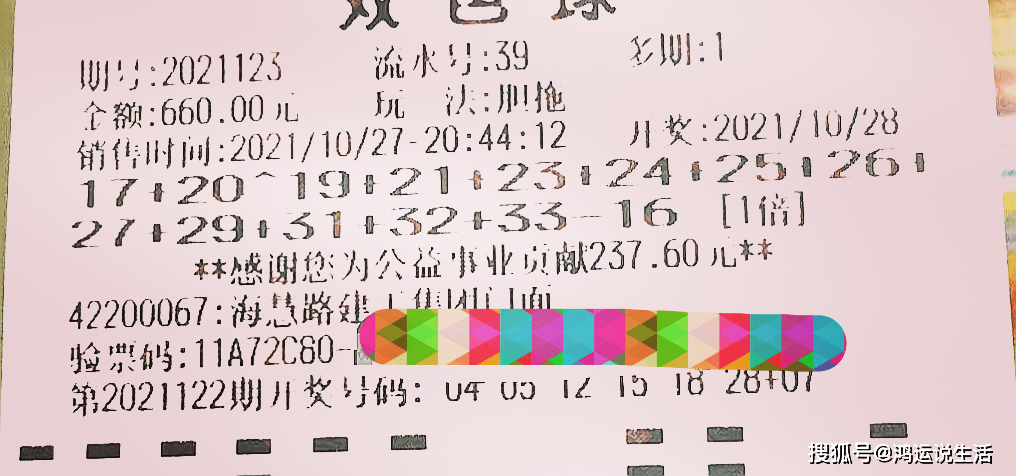 双色球
期号:2021123 流水号:39 多期:1
金额:660.00元 玩 法:胆拖
销售时间:2021/10/27-20:44:12 开奖:2021/10/28
17+20^19+21+23+24+25+26+
27+29+31+32+33-16 [1倍]
**感谢您为公益事业贡献237.60元**
42200067:海慧路建工集团门面
验票码:11A72C80-
第2021122期开奖号码: 04 05 12 15 18 28+07
搜狐号@鸿运说生活